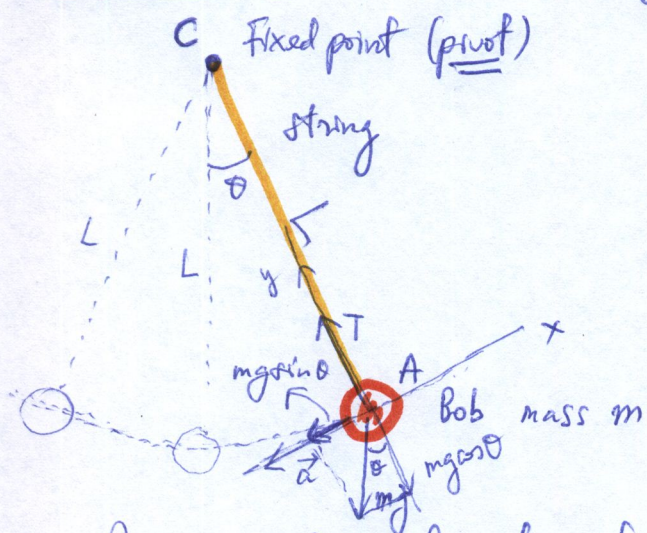 C Fixed point (pivot)
string
θ
L
L
y
T
x
mgsinθ
A
Bob mass m
θ
mgcosθ
a⃗
mg